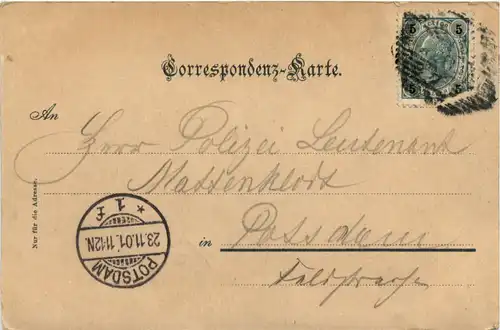 5 5
5 5
Correspondenz-Karte.
An
Herr Polizei Lieutenant
Mattenklodt
in Potsdam
Nur für die Adresse.
POTSDAM
23.11.01.11-12N.
* 1 f